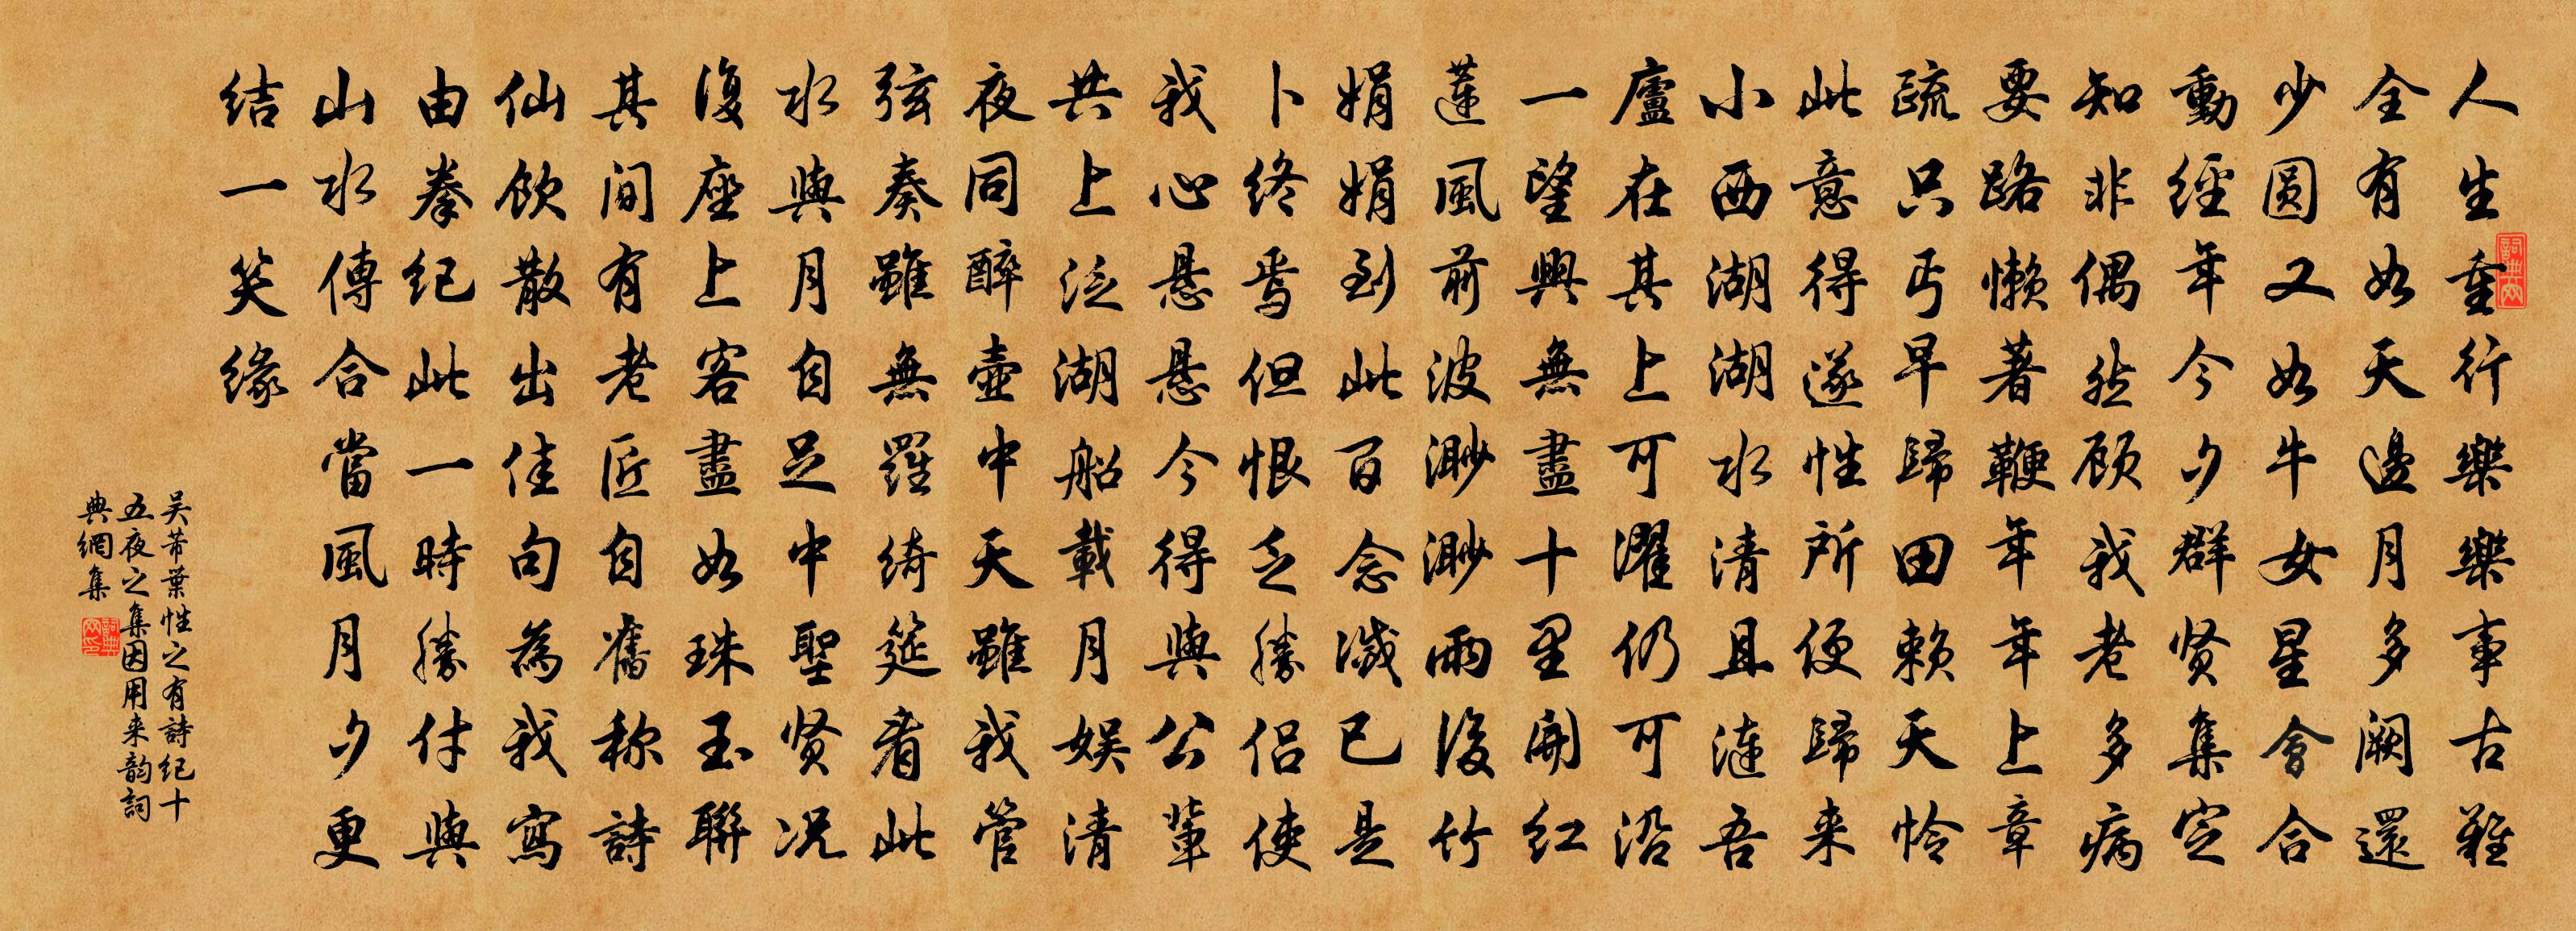 人生重行樂樂事古難
全有如天邊月多阙還
少圓又如牛女星會合
動經年今夕群贤集定
知非偶然顾我老多病
要路懒著鞭年年上章
疏只丐早歸田赖天怜
此意得遂性所便歸来
小西湖湖水清且漣吾
廬在其上可濯仍可沿
一望興無盡十里開红
蓮風前波渺渺雨後竹
娟娟到此百念滅已是
卜終焉但恨乏勝侣使
我心悬悬今得與公輩
共上泛湖船載月娱清
夜同醉壶中天雖我管
弦奏雖無羅绮筵看此
水與月自足中聖贤况
復座上客盡如珠玉聯
其間有老匠自舊称詩
仙飲散出佳句為我寫
由拳纪此一時勝付與
山水傳合當風月夕更
结一笑缘
吴芾葉性之有詩纪十
五夜之集因用来韵詞
典網集